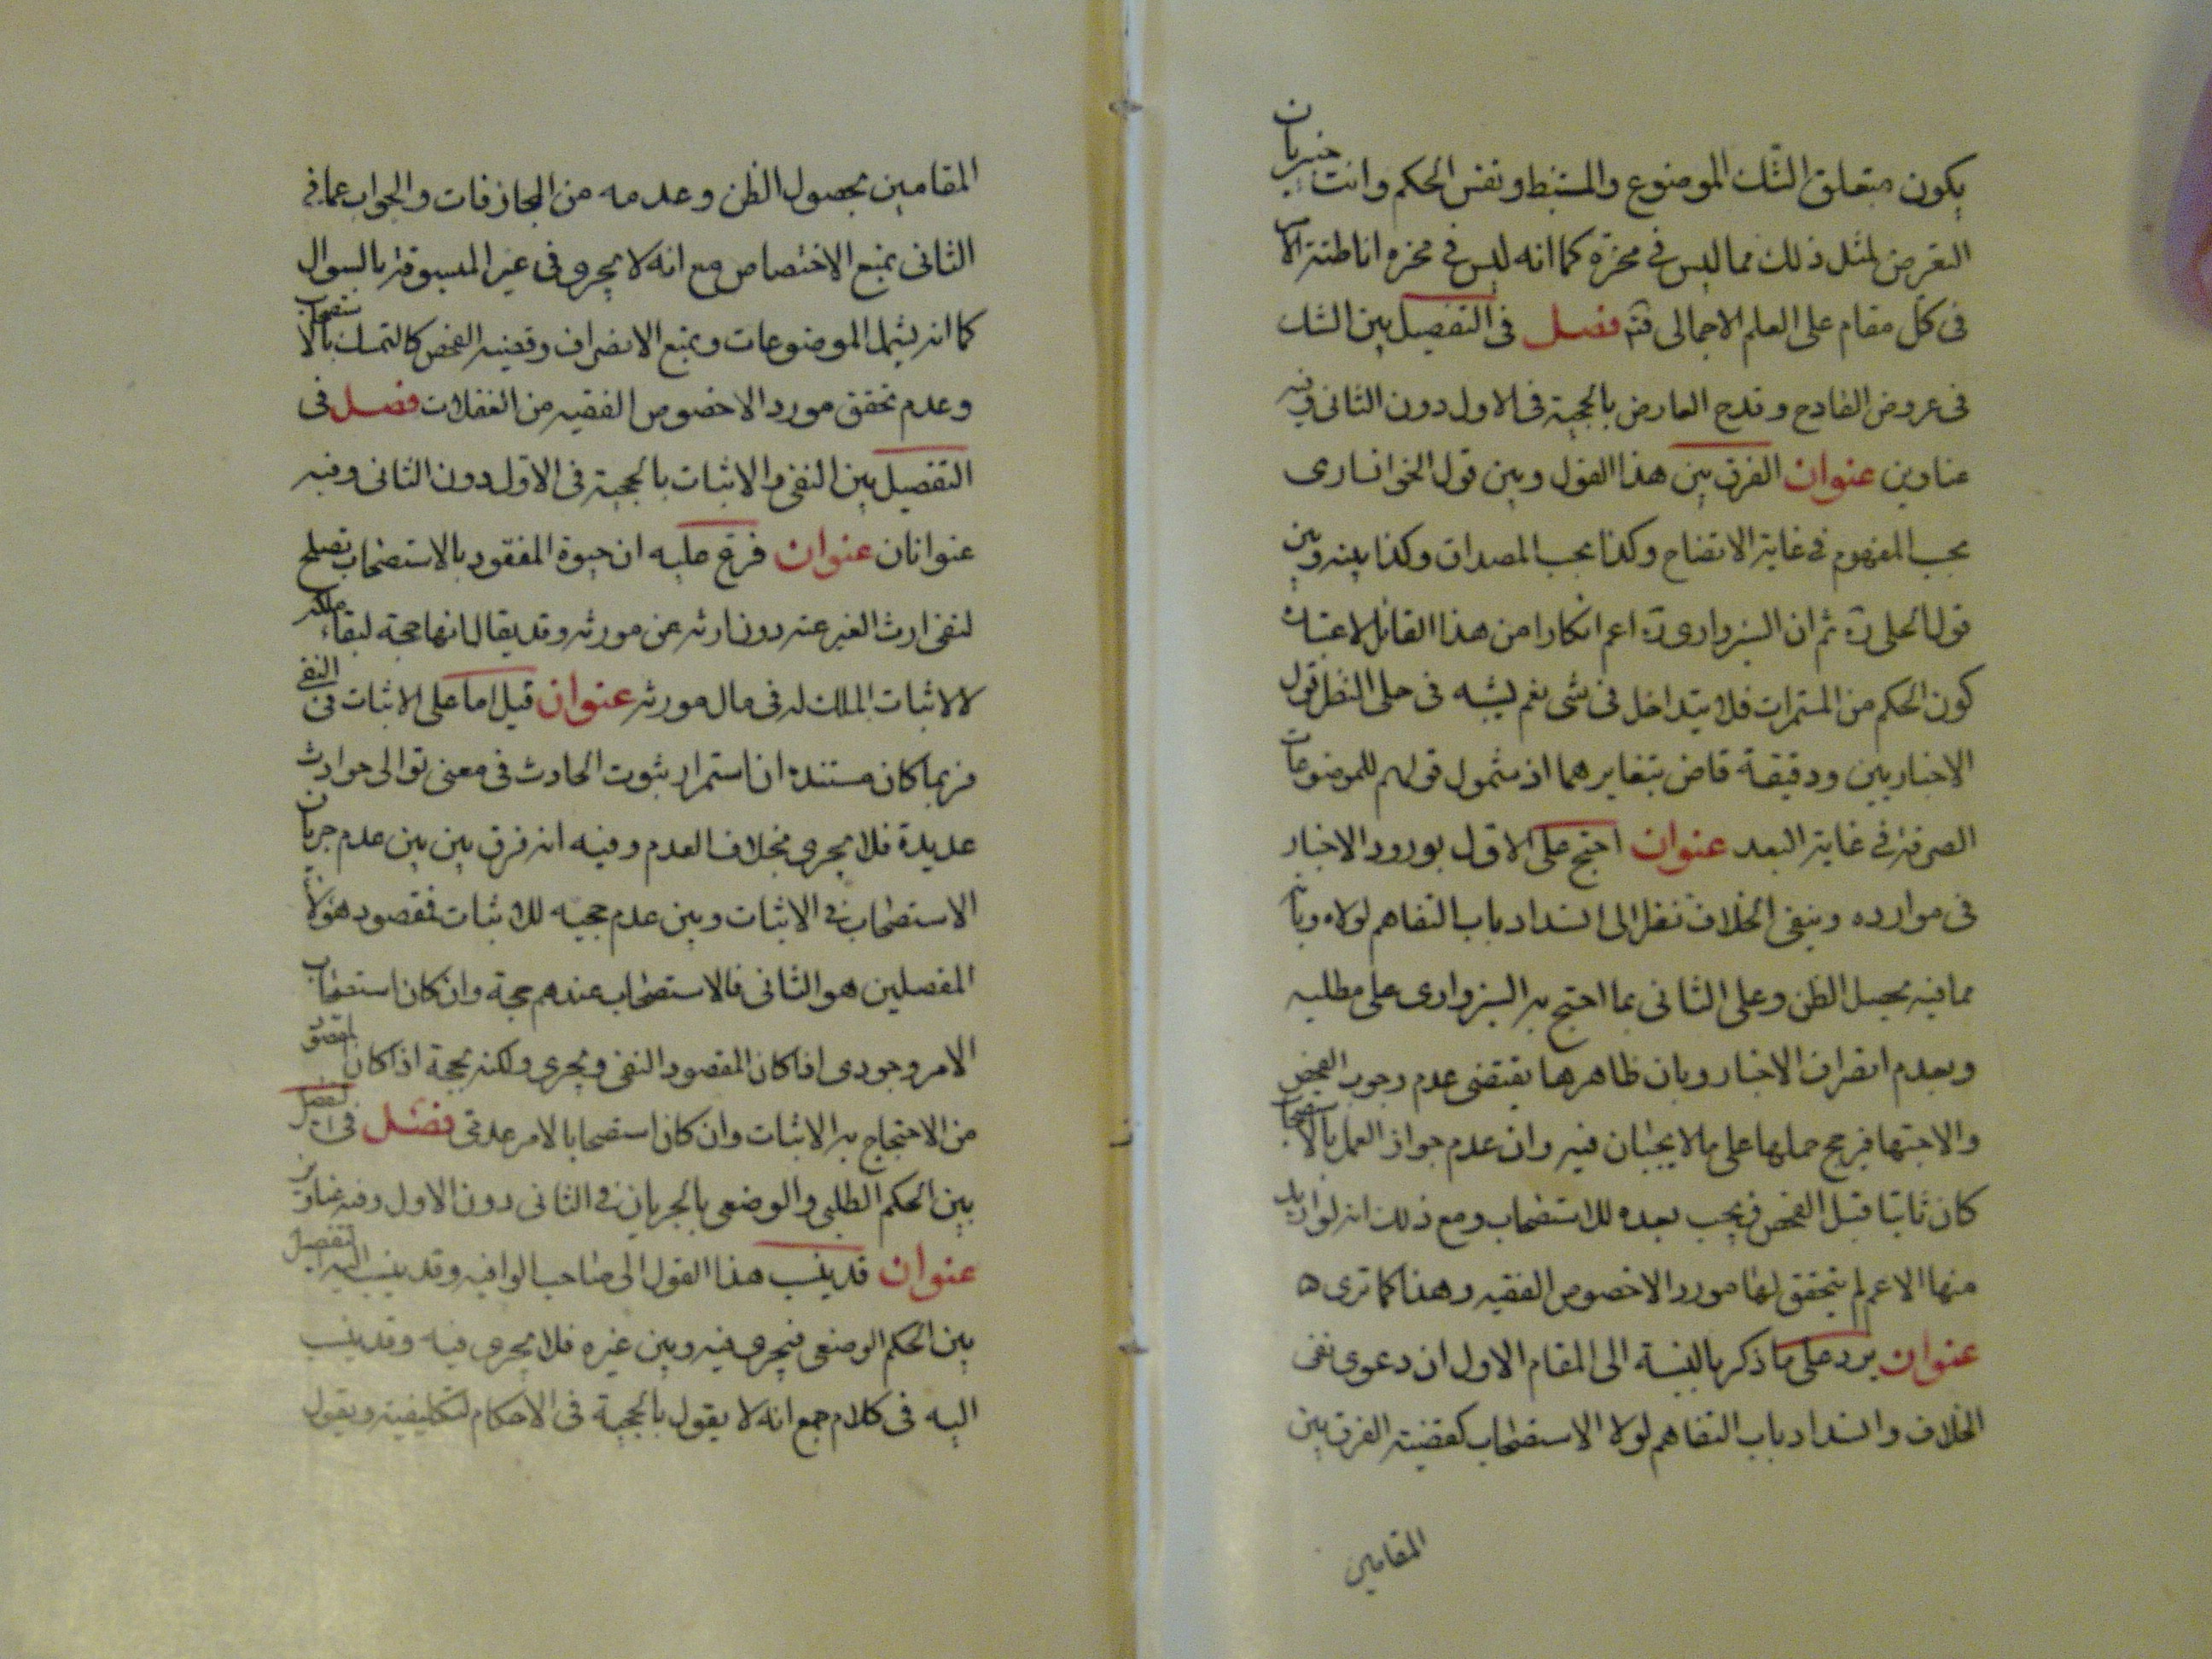 يكون متعلق الشك الموضوع والمستنبط ونفس الحكم وانت خبير بان
التعرض لمثل ذلك مما ليس في محزه كما انه ليس في محزه اناطته الامر
في كل مقام على العلم الاجمالى فتم فصل في التفصيل بين الشك
في عروض القادح وقدح العارض بالحجية في الاول دون الثانى وفيه
عناوين عنوان الفرق بين هذا القول وبين قول الخوانسارى
بحسب المفهوم في غاية الاتضاح وكذا بحسب المصداق وكذا بينه وبين
قول الحلى ره ثم ان السبزوارى ره اعم انكارا من هذا القائل لاعتباره
كون الحكم من المستمرات فلا يتداخل في شى نعم يشبه في جلى النظر قول
الاخباريين ودقيقة قاض بتغايرهما اذ شمول قولهم للموضوعات
الصرفة في غاية البعد عنوان احتج على الاول بورود الاخبار
في موارده وبنفى الخلاف نقل الى انسداد باب التفاهم لولاه وبان
مما فيه يحصل الظن وعلى الثانى بما احتج به السبزوارى على مطلبه
وبعدم انصراف الاخبار وبان ظاهرها يقتضى عدم وجوب الفحص
والاجتهاد فيرجح حملها على ما لا يجبان فيه وان عدم جواز العمل بالاستصحاب
كان ثابتا قبل الفحص فيجب بعده للاستصحاب ومع ذلك انه لو اريد
منها الاعم لم يتحقق لها مورد الا خصوص الفقيه وهذا كما ترى ه
عنوان يرد على ما ذكر بالنسبة الى المقام الاول ان دعوى نفى
الخلاف وانسداد باب التفاهم لولا الاستصحاب كقضية الفرق بين
المقامين
المقامين بحصول الظن وعدمه من المجازفات والجواب عما في
الثانى بمنع الاختصاص مع انه لا يجرى في غير المسبوقة بالسوال
كما انه يشمل الموضوعات وبمنع الانصراف وقضية الفحص كالتمسك بالاستصحاب
وعدم تحقق مورد الا خصوص الفقيه من الغفلات فصل في
التفصيل بين النفى والاثبات بالحجية في الاول دون الثانى وفيه
عنوانان عنوان فرع عليه ان حيوة المفقود بالاستصحاب تصلح
لنفى ارث الغير عنه دون ارثه عن مورثه وقد يقال انها حجة لبقاء ملكه
لا لاثبات الملك له في مال مورثه عنوان قيل اما على الاثبات في النفى
فربما كان مستنده ان استمرار ثبوت الحادث في معنى توالى حوادث
عديدة فلا يجرى بخلاف العدم وفيه انه فرق بين بين عدم جريان
الاستصحاب في الاثبات وبين عدم حجيه للاثبات فمقصود هؤلاء
المفصلين هو الثانى فالاستصحاب عندهم حجة وان كان استصحاب
الامر وجودى اذا كان المقصود النفى ويجرى ولكنه بحجة اذا كان المقصود
من الاحتجاج به الاثبات وان كان استصحابا لامر عدمى فصل في التفصيل
بين الحكم الطلبى والوضعى بالجريان في الثانى دون الاول وفيه عناوين
عنوان قد ينسب هذا القول الى صاحب الوافيه وقد ينسب اليه التفصيل
بين الحكم الوضعى فيجرى فيه وبين غيره فلا يجرى فيه وقد ينسب
اليه في كلام جمع انه لا يقول بالحجية في الاحكام التكليفيه ويقول